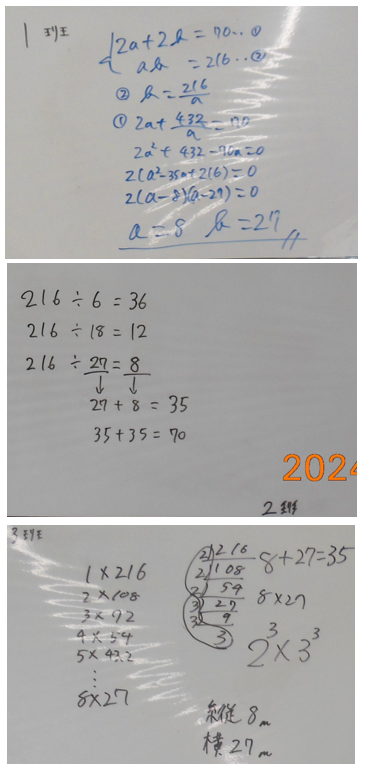 1班
2a+2b=70‥①
ab =216‥②
② b=216/a
① 2a+432/a=70
2a²+432-70a=0
2(a²-35a+216)=0
2(a-8)(a-27)=0
a=8 b=27
216÷6=36
216÷18=12
216÷27=8
↓ ↓
27+8=35
35+35=70
2024
2班
3班
1×216
2×108
3×72
4×54
5×43.2
⋮
8×27
2)216
2)108
2)54
3)27
3)9
3
8+27=35
8×27
2³×3³
縦8m
横27m